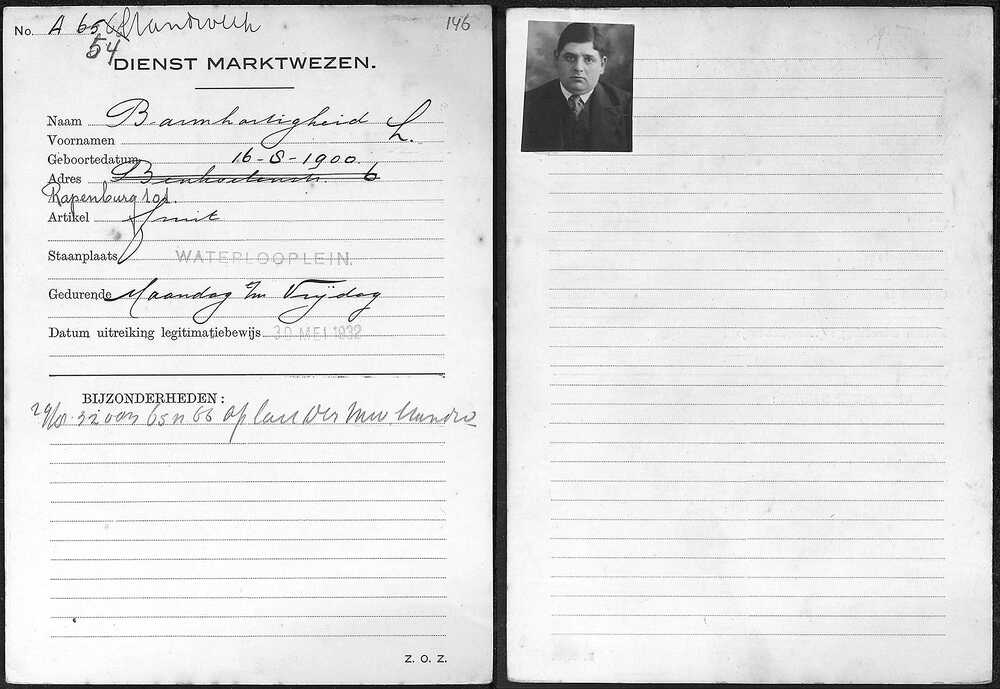 No. A 65 Standwerk 146
54
DIENST MARKTWEZEN.
Naam Barmhartigheid L.
Voornamen
Geboortedatum 16-8-1900
Adres 6
Rapenburg 101.
Artikel fruit
Staanplaats WATERLOOPLEIN.
Gedurende Maandag t/m Vrijdag
Datum uitreiking legitimatiebewijs 30 MEI 1932
BIJZONDERHEDEN:
32 van 65 n 66 op last
Z. O. Z.